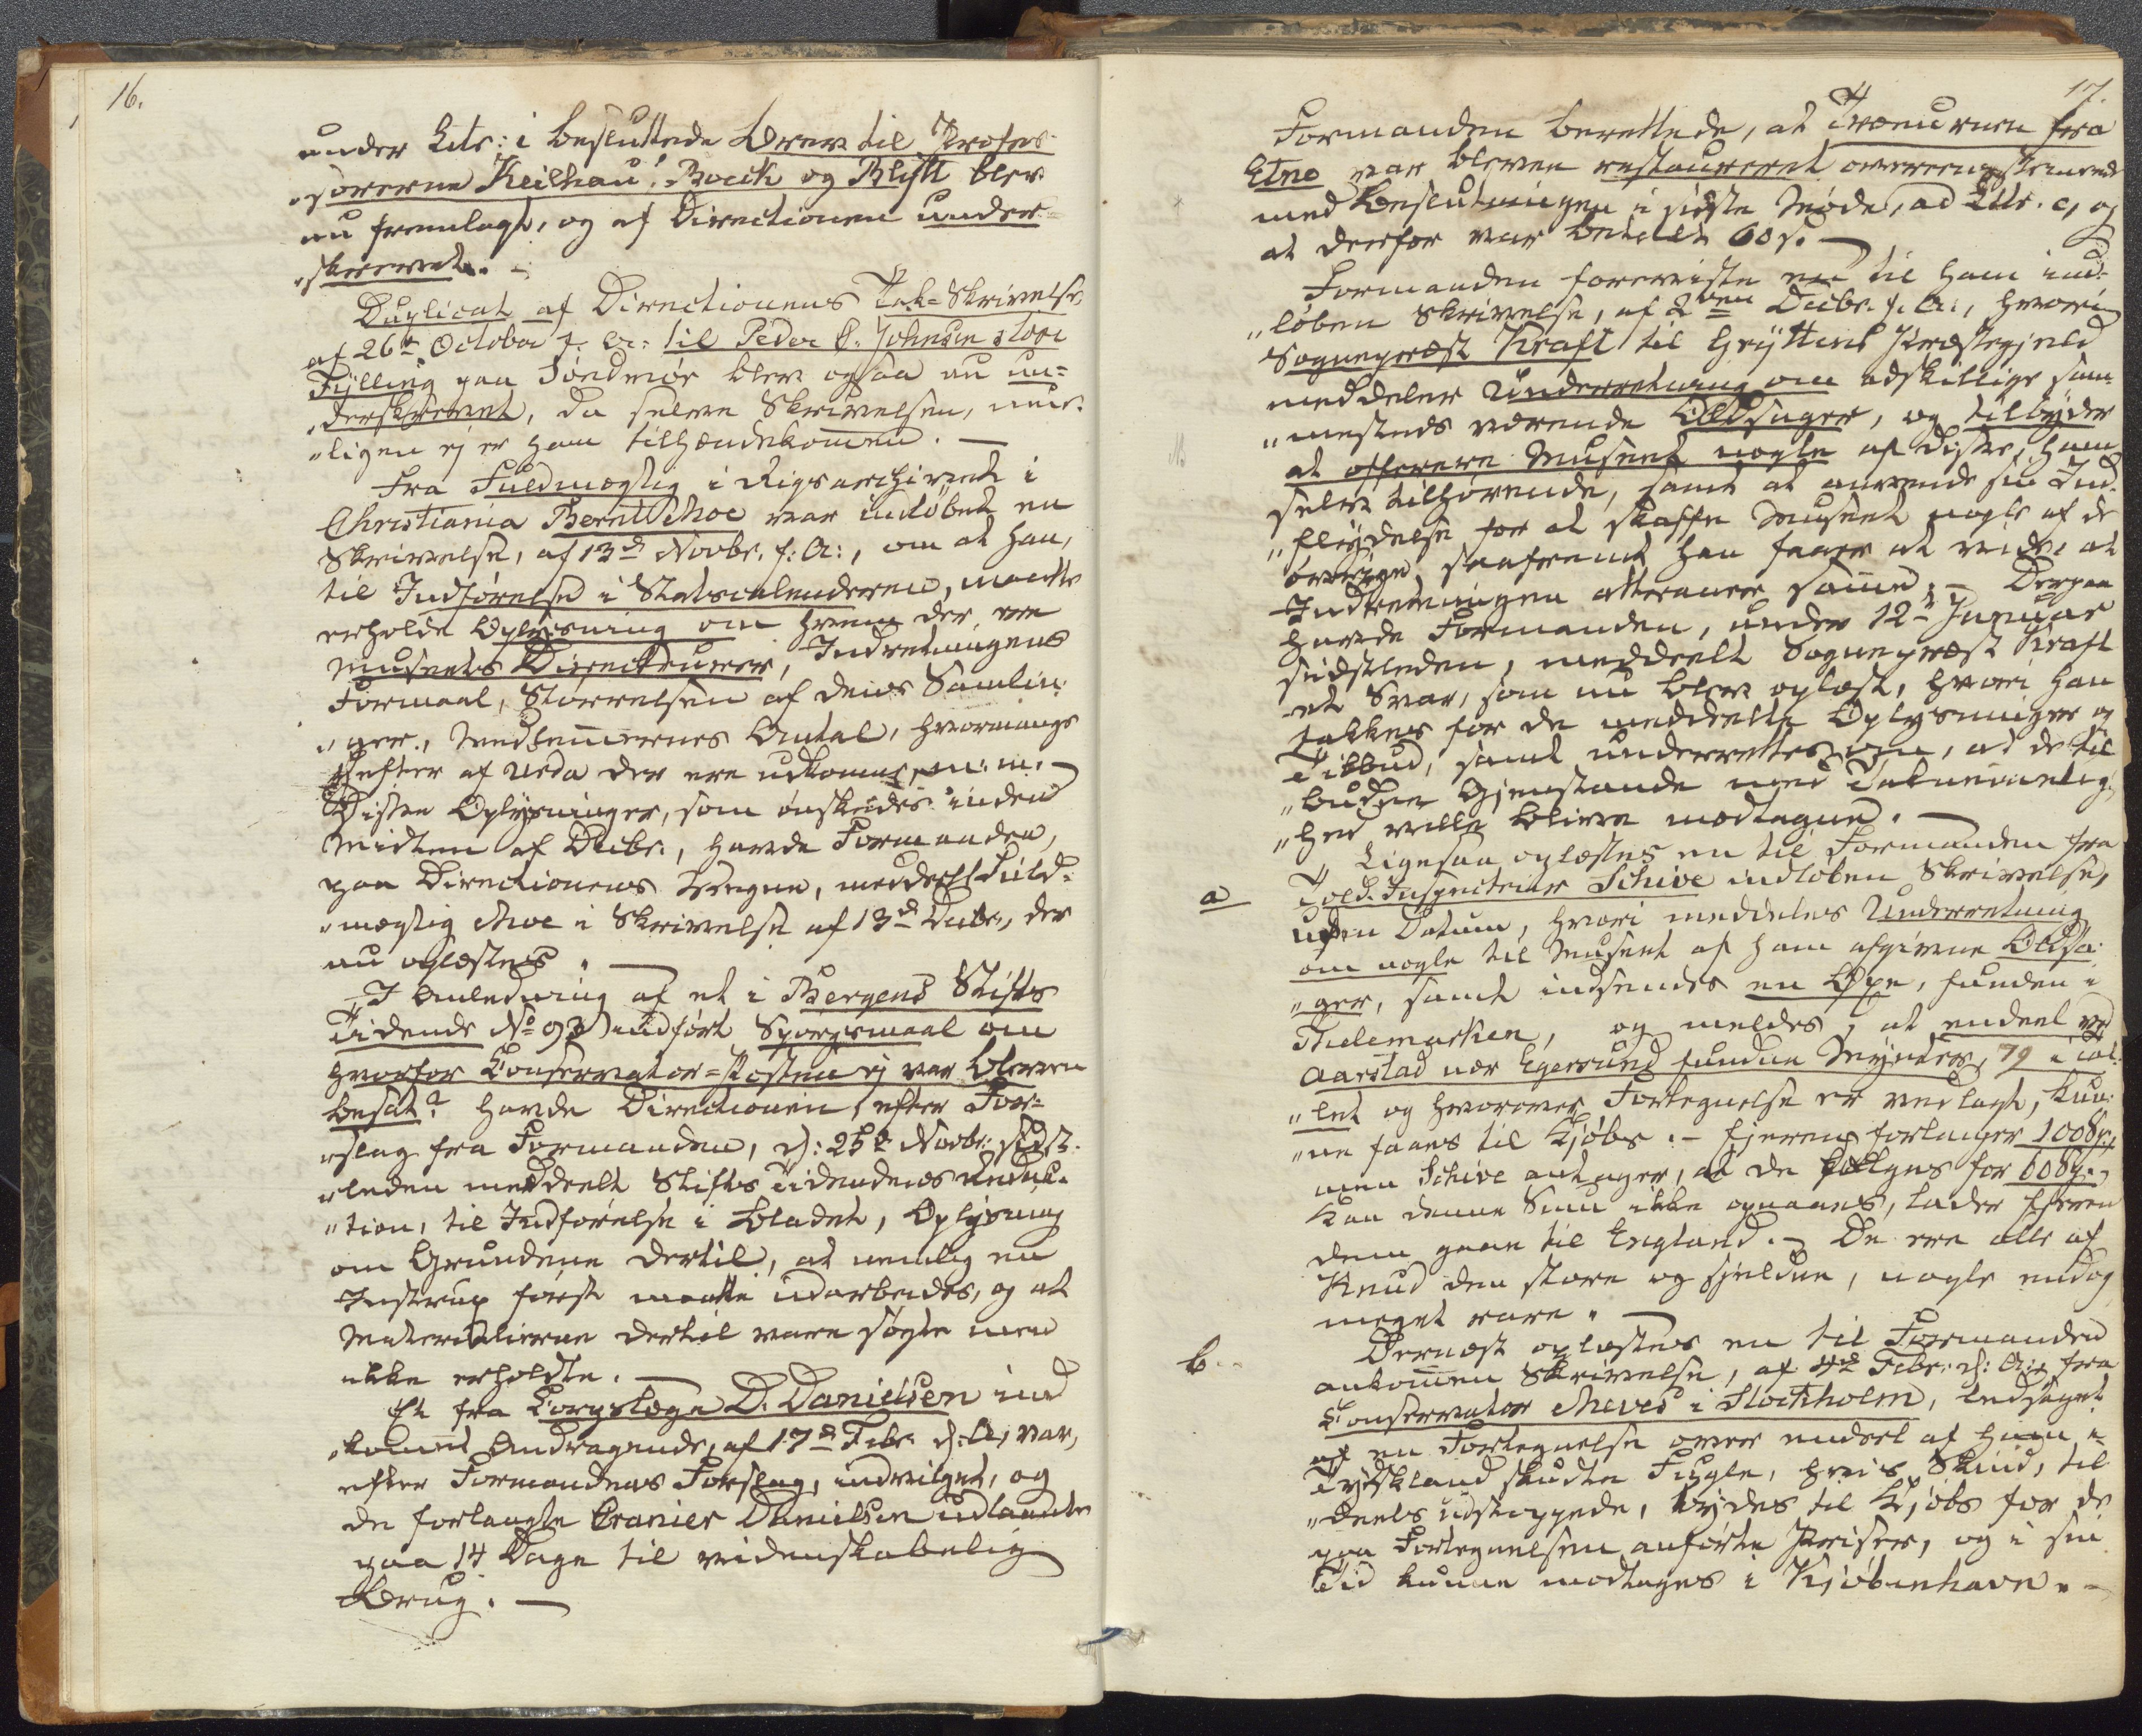 16.
under Litr: i besluttede Breve til Profes-
"sorerne Keilhau, Boeck og Blytt blev
nu fremlagt, og af Directionen under-
"skrevet. —
Duplicat af Directionens Tak-Skrivelse
af 26de October f. A: til Peder C. Johnsen store
Fylling paa Söndmör blev ogsaa nu un-
"derskrevet, da selve Skrivelsen, nem-
"ligen ej er ham tilhændekommen. —
Fra Fuldmægtig i Rigsarchivet i
Christiania Bernt Moe var indlöbet en
Skrivelse, af 13de Novbr. f: A:, om at han,
til Indförelse i Statscalenderen, maatte
erholde Oplysning om hvem der ere
Museets Directeurer, Indretningens
Formaal, Störrelsen af dens Samlin-
"ger, Medlemmernes Antal, hvormange
Hefter af Urda der ere udkomne, m: m. —
Disse Oplysninger, som önskedes inden
Midten af Decbr., havde Formanden,
paa Directionens Vegne, meddeelt Fuld-
"mægtig Moe i Skrivelse af 13de Decbr., der
nu oplæstes. —
I Anledning af et i Bergens Stifts
Tidende No 93 indfört Spörgsmaal om
hvorfor Conservator-Posten ej var bleven
besat? havde Directionen, efter For-
"slag fra Formanden, d: 25de Novbr: sidst-
"leden meddeelt Stifts Tidendens Redac-
"tion, til Indförelse i Bladet, Oplysning
om Grundene dertil, at nemlig en
Instrux först maatte udarbeides, og at
Materialierne dertil vare sögte men
ikke erholdte. —
Et fra Corpslæge D. Danielsen ind
"kommet Andragende, af 17de Febr. d: A:, var,
efter Formandens Forslag, indvilget, og
de forlangte Cranier Danielsen udlaante
paa 14 Dage til videnskabelig
Brug. —
17.
Formanden berettede, at Træurnen fra
Etne var bleven restaureret overeensstemmende
med Beslutningen i sidste Möde, ad Litr. c, og
at derfor var betalt 60 s. —
Formanden foreviste en til ham ind-
"löben Skrivelse, af 2den Decbr. f. A:, hvori
Sognepræst Kraft til Gryttens Præstegjeld
meddeler Underretning om adskillige sam-
"mesteds værende Oldsager, og tilbyder
at offerere Museet nogle af disse, ham
selv tilhörende, samt at anvende sin Ind-
"flydelse for at skaffe Museet nogle af de
övrige, saafremt han faaer at vide, at
Indretningen attraaer samme. — Derpaa
havde Formanden, under 12te Januar
sidstleden, meddeelt Sognepræst Kraft
et Svar, som nu blev oplæst, hvori han
takkes for de meddeelte Oplysninger og
Tilbud, samt underrettes om, at de til
"budne Gjenstande med Taknemmelig-
"hed ville blive modtagne. —
Ligesaa oplæstes en til Formanden fra
a Told-Inspecteur Schive indlöben Skrivelse,
uden Datum, hvori meddeles Underretning
om nogle til Museet af ham afgivne Oldsa-
"ger, samt indsendes en Öxe, funden i
Thelemarken, og meldes, at endeel ved
Aarstad nær Egersund fundne Mynter, 79 i Tal-
"let og hvorover Fortegnelse er vedlagt, kun-
"ne faaes til Kjöbs. — Ejeren forlanger 100 Sp.,
men Schive antager, at de sælges for 60 Sp. —
Kan denne Sum ikke opnaaes, lader Ejeren
dem gaae til England. — De ere alle af
Knud den store og sjeldne, nogle endog
meget rare. —
b. Dernæst oplæstes en til Formanden
ankommen Skrivelse, af 4de Febr: d: A:, fra
Conservator Meves i Stockholm, ledsaget
af en Fortegnelse over endeel af ham i
Tydskland skudte Fugle, hvis Skind, til
"deels udstoppede, bydes til Kjöbs for de
paa Fortegnelsen anförte Priser, og i sin
Tid kunne modtages i Kjöbenhavn. —